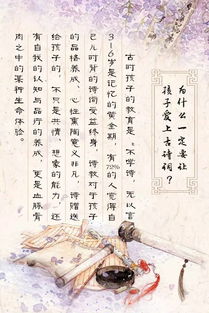 为什么一定要让
孩子爱上古诗词？
古时孩子的教育是“不学诗，无以言”
岁是记忆的黄金期，有 的人觉得自
己儿时背的诗词受益终身。诗教对于孩子
的品格养成、心性熏陶意义非凡。诗赠送
给孩子的，不只是共情、想象的能力，还
有自我的认知与品行的养成，更是血脉骨
肉之中的某种生命体验。